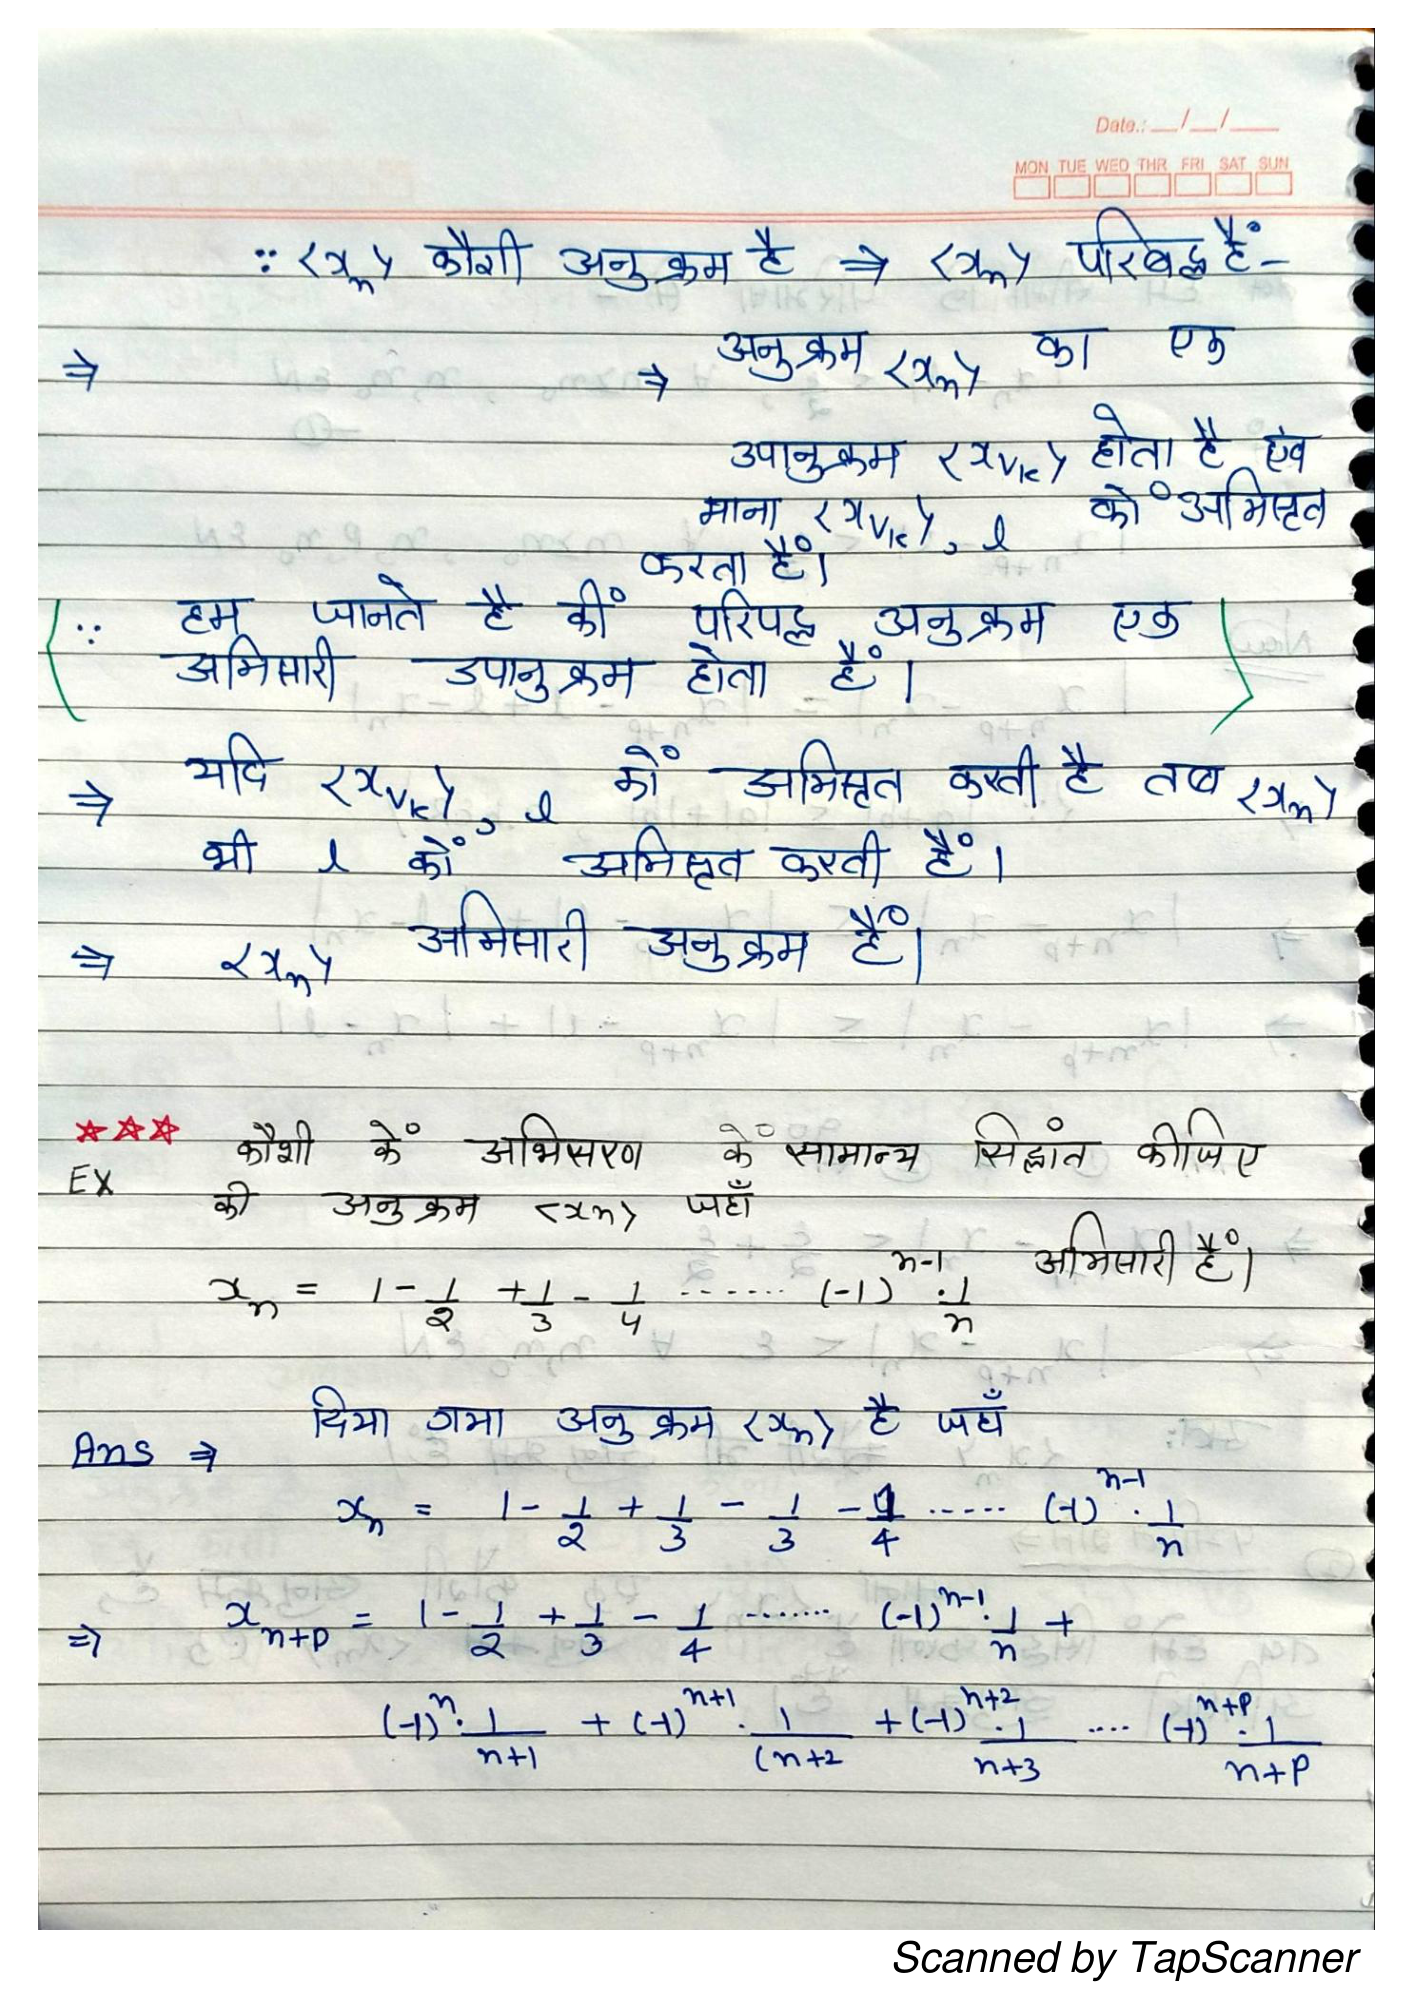 Date.: __/__/____
MON TUE WED THR FRI SAT SUN
∵ <xₙ> कौशी अनुक्रम है ⇒ <xₙ> परिबद्ध हैं-
⇒ ⇒ अनुक्रम <xₙ> का एक
उपानुक्रम <x_{Vk}> होता है एंव
माना <x_{Vk}>, l कों अभिसृत
करता हैं।
∵ हम जानते है कीं परिपद्ध अनुक्रम एक
अभिसारी उपानुक्रम होता हैं।
⇒ यदि <x_{Vk}>, l कों अभिसृत करती है तब <xₙ>
भी l कों अभिसृत करती हैं।
⇒ <xₙ> अभिसारी अनुक्रम हैं।
☆☆☆ कौशी कें अभिसरण कें सामान्य सिद्धांत कीजिए
EX की अनुक्रम <xn> जहाँ
xₙ = 1 - 1/2 + 1/3 - 1/4 ....... (-1)^{n-1} . 1/n अभिसारी हैं।
Ans ⇒ दिया गया अनुक्रम <xₙ> है जहाँ
xₙ = 1 - 1/2 + 1/3 - 1/3 - 1/4 ..... (-1)^{n-1} . 1/n
⇒ x_{n+p} = 1 - 1/2 + 1/3 - 1/4 ....... (-1)^{n-1} . 1/n +
(-1)^{n} . 1/n+1 + (-1)^{n+1} . 1/(n+2 + (-1)^{n+2} . 1/n+3 .... (-1)^{n+p} . 1/n+p
Scanned by TapScanner